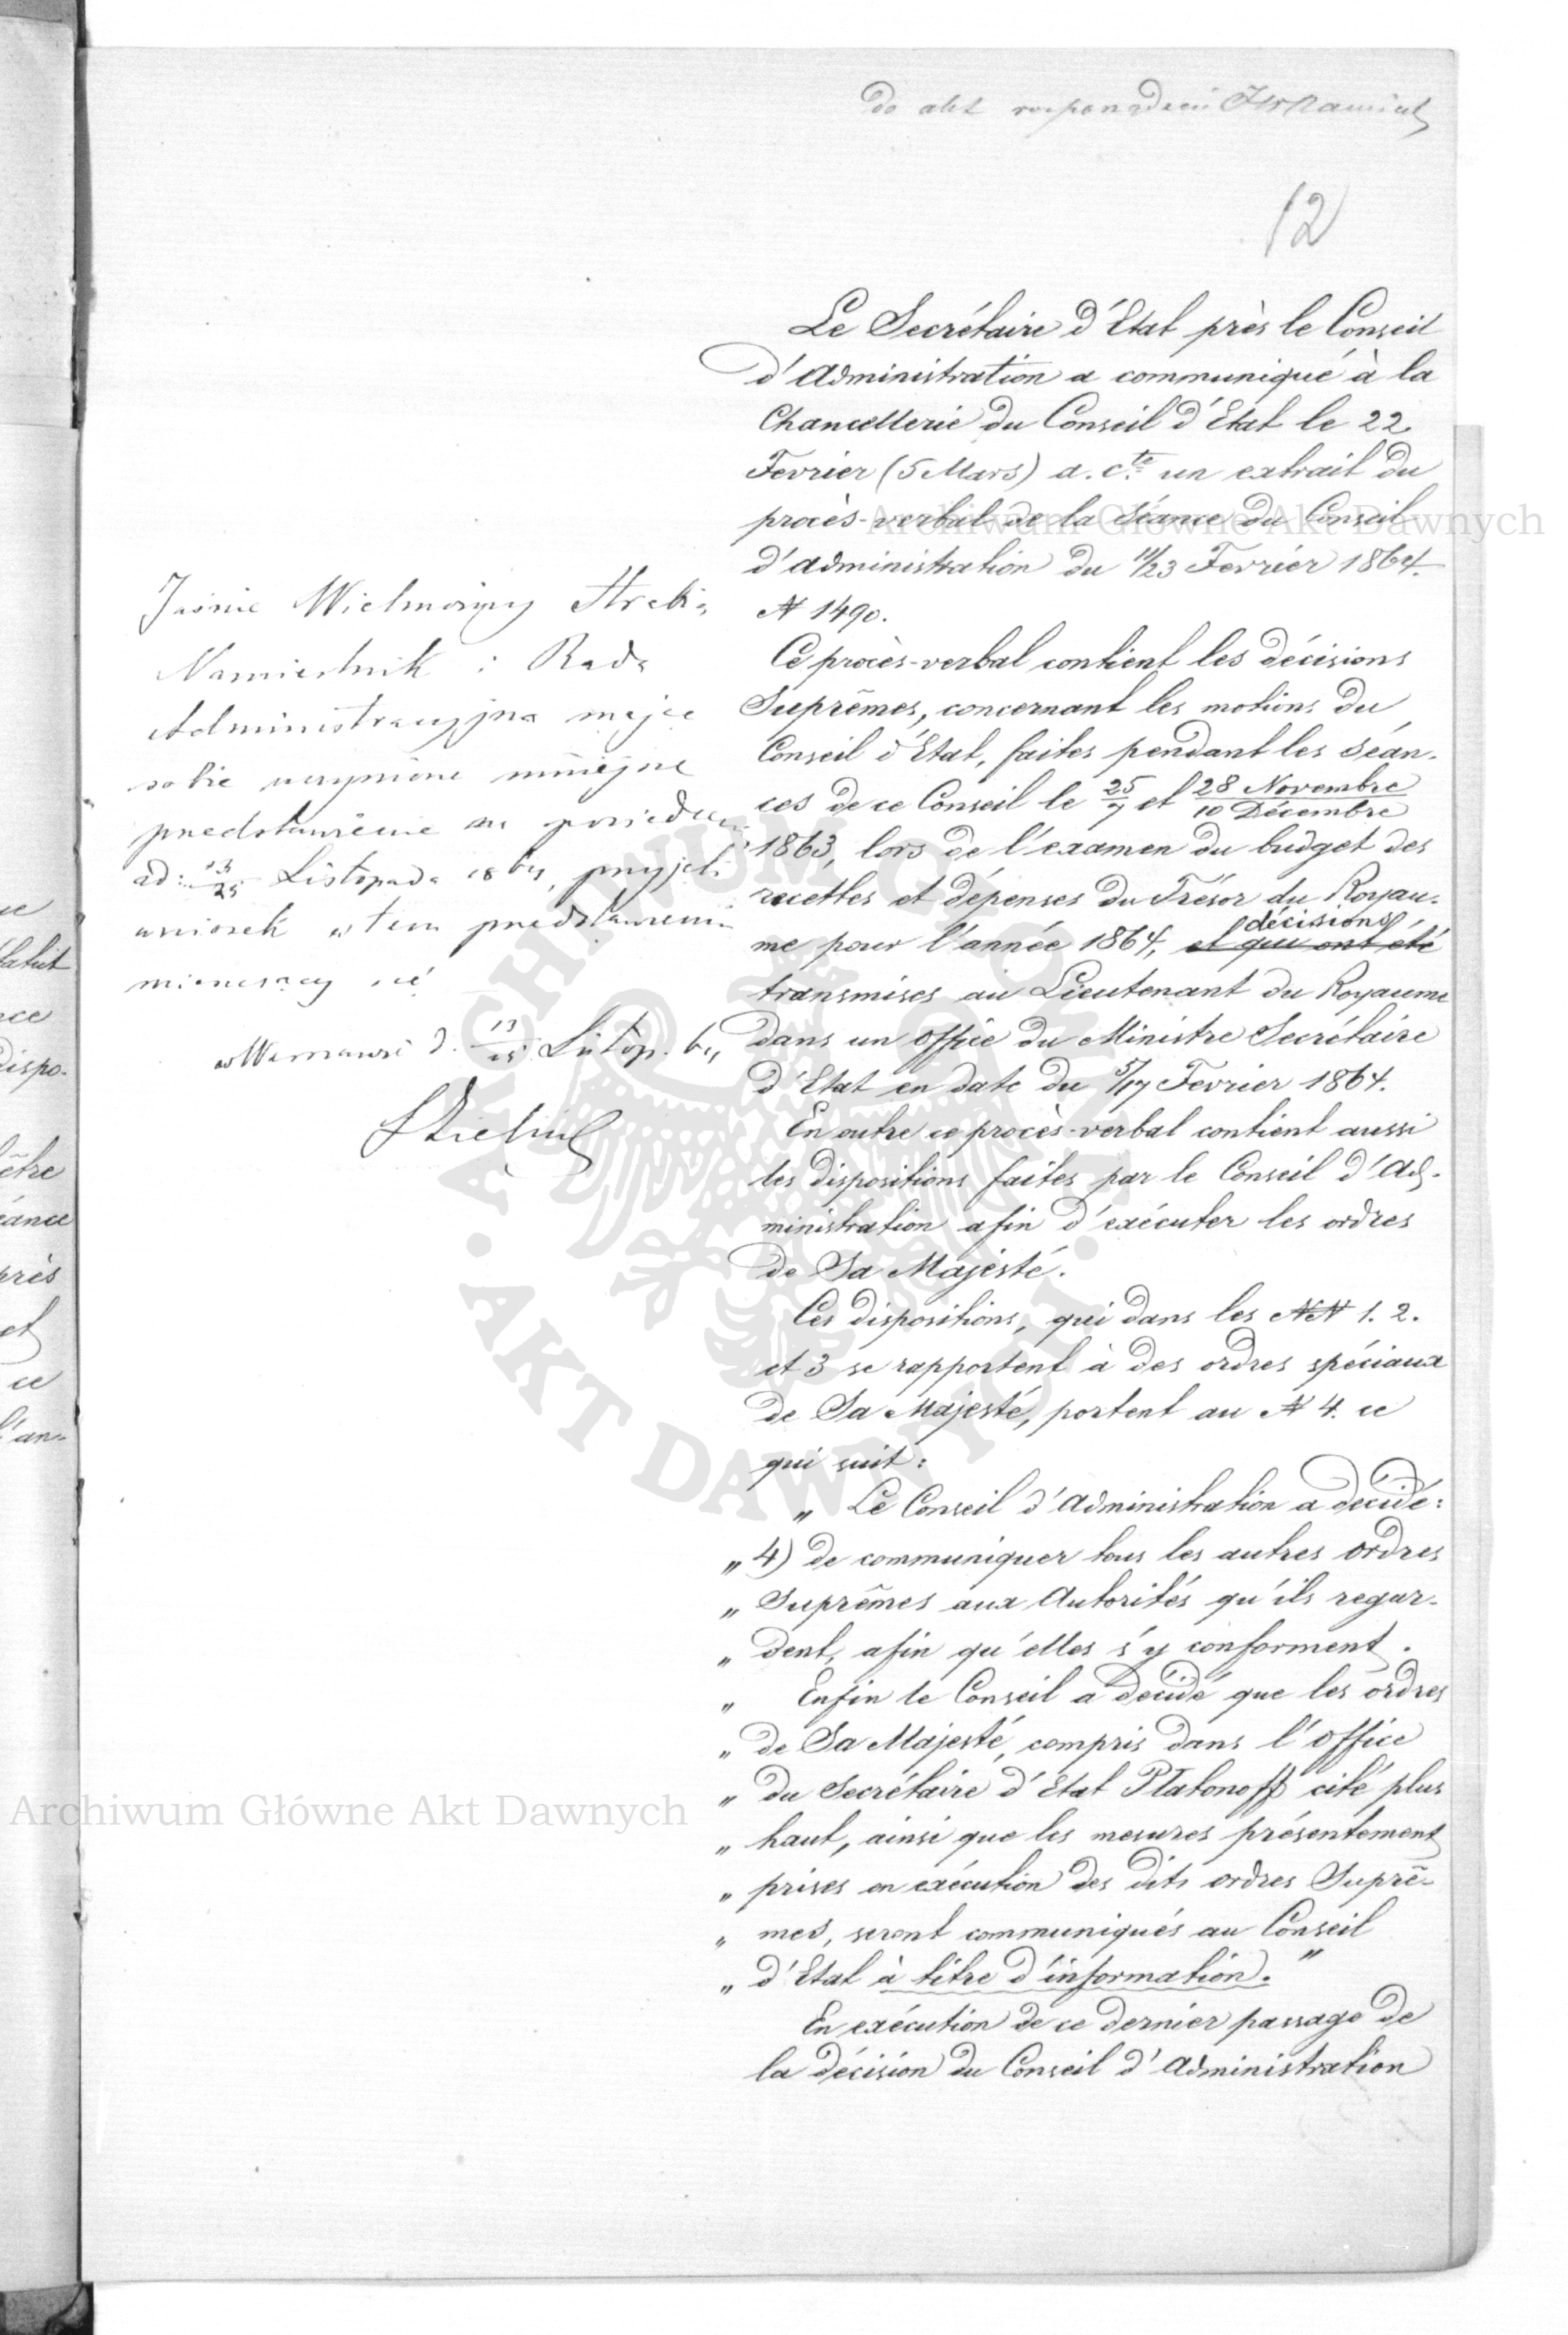 do akt
12
Le Secrétaire d'Etat près le Conseil
d'Administration a communiqué à la
Chancellerie du Conseil d'Etat le 22
Fevrier (5 Mars) a. c.te un extrait du
procès-verbal de la Séance du Conseil
d'administration du 11/23 Fevrier 1864.
N 1490.
Ce procès-verbal contient les décisions
Suprêmes, concernant les motions du
Conseil d'Etat, faites pendant les Séan-
ces de ce Conseil le 25/7 et 28 Novembre/10 Décembre
1863, lors de l'examen du budget des
recettes et dépenses du Trésor du Royau-
me pour l'année 1864, et qui ont été décisions
transmises au Lieutenant du Royaume
dans un office du Ministre Secrétaire
d'Etat en date du 5/17 Fevrier 1864.
En outre ce procès-verbal contient aussi
les dispositions faites par le Conseil d'Ad-
ministration afin d'exécuter les ordres
de Sa Majesté.
Ces dispositions, qui dans les NN 1. 2.
et 3 se rapportent à des ordres spéciaux
de Sa Majesté, portent au N 4. ce
qui suit:
„ Le Conseil d'Administration a decidé:
„ 4) de communiquer tous les autres ordres
„ Suprêmes aux Autorités qu'ils regar-
„ dent, afin qu'elles s'y conforment.
„ Enfin le Conseil a decidé que les ordres
„ de Sa Majesté, compris dans l'office
„ du Secrétaire d'Etat Platonoff cité plus
„ haut, ainsi que les mesures présentement
„ prises en exécution des dits ordres Suprê-
„ mes, seront communiqués au Conseil
„ d'Etat à titre d'information."
En exécution de ce dernier passage de
la décision du Conseil d'Administration
Jaśnie Wielmożny Hrabia
Namiestnik i Rada
Administracyjna mając
sobie uczynione niniejsze
przedstawienie na posiedzeniu
d: 13/25 Listopada 1864, przyjęli
wniosek w tem przedstawieniu
mieszczący się
w Warszawie d. 13/25 Listop. 64
tatut
ce
dispo-
être
éance
près
et
ce
l'an-
Archiwum Główne Akt Dawnych
Archiwum Główne Akt Dawnych
ARCHIWUM GŁÓWNE · AKT DAWNYCH ·